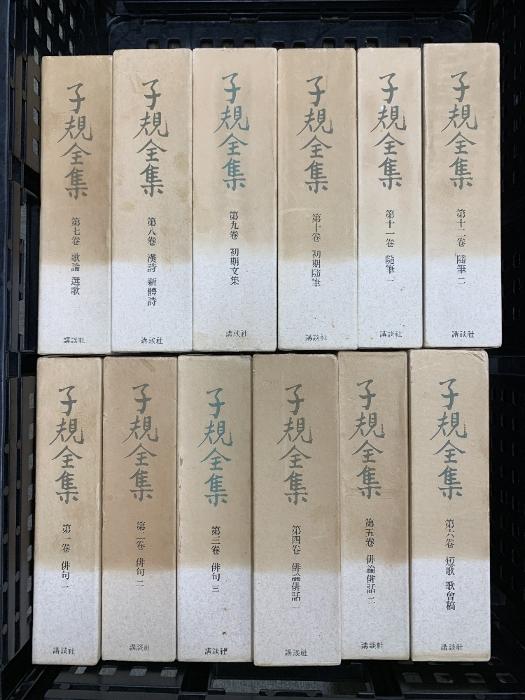 子規全集
第七卷 歌論 選歌
講談社
子規全集
第八卷 漢詩 新體詩
講談社
子規全集
第九卷 初期文集
講談社
子規全集
第十卷 初期隨筆
講談社
子規全集
第十一卷 隨筆一
講談社
子規全集
第十二卷 隨筆二
講談社
子規全集
第一卷 俳句一
講談社
子規全集
第二卷 俳句二
講談社
子規全集
第三卷 俳句三
講談社
子規全集
第四卷 俳論俳話一
講談社
子規全集
第五卷 俳論俳話二
講談社
子規全集
第六卷 短歌 歌會稿
講談社